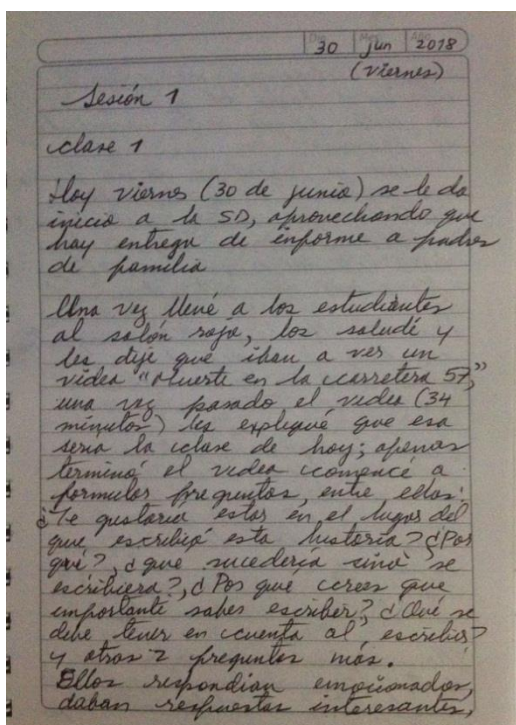 Día Mes Año
30 Jun 2018
(viernes)
Sesión 1
clase 1
Hoy viernes (30 de junio) se le da
inicio a la SD, aprovechando que
hay entrega de informe a padres
de familia
Una vez llevé a los estudiantes
al salón rojo, los saludé y
les dije que iban a ver un
video "Muerte en la carretera 57,"
una vez pasado el video (34
minutos) les expliqué que esa
seria la clase de hoy; apenas
terminó el video comencé a
formular preguntas, entre ellas:
¿Te gustaria estar en el lugar del
que escribió esta historia? ¿Por
qué?, ¿que sucedería sino se
escribiera?, ¿Por qué crees que
importante saber escriber?, ¿Qué se
debe tener en cuenta al escribir?
y otras 2 preguntas más.
Ellos respondian emocionados,
daban respuestas interesantes,